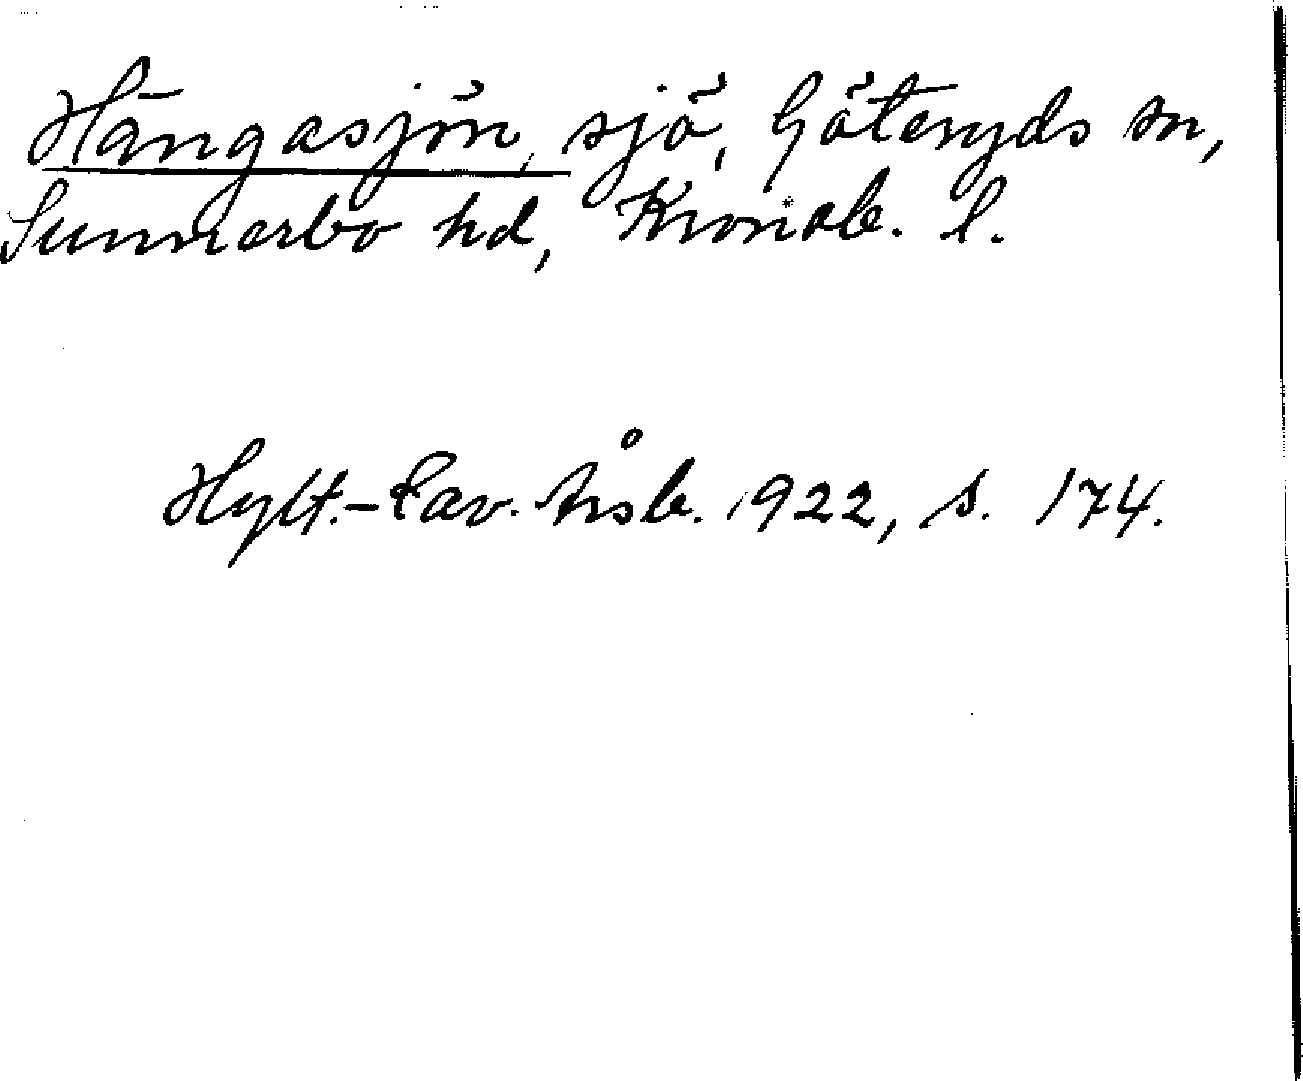 Hängasjön, sjö, Göteryds sn,
Sunnerbo hd, Kronob. l.
Hylt.-Cav. Årsb. 1922, s. 174.